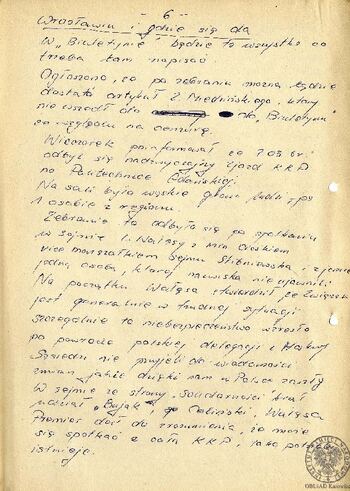 - 6 -
Wrocławiu i gdzie się da
W „Biuletynie" będzie to wszystko co
trzeba tam napisać.
Ogłoszono, że po zebraniu można będzie
dostać artykuł Z. Niedzińskiego, który
nie wszedł do „Biuletynu"
ze względu na cenzurę.
Wieczorek poinformował że 7.03 br.
odbył się nadzwyczajny zjazd KKP
na Politechnice Gdańskiej.
Na sali było wąskie grono
1 osobie z regionu.
Zebranie to odbyło się po spotkaniu
w sejmie L. Wałęsy z
vice marszałkiem Sejmu i jeszcze
jedną osobą, której nazwiska nie ujawnili
Na początku Wałęsa stwierdził, że Związek
jest generalnie w trudnej sytuacji
szczególnie to niebezpieczeństwo wzrosło
po powrocie polskiej delegacji z Moskwy
Sąsiedzi nie przyjęli do wiadomości
zmian jakie dzięki nam w Polsce zaszły
W sejmie ze strony „Solidarności" brał
udział „Bujak", p. Celiński, Wałęsa
Premier dał do zrozumienia, że może
się spotkać z całą KKP, jako
istnieje.
OBUiAD Katowice